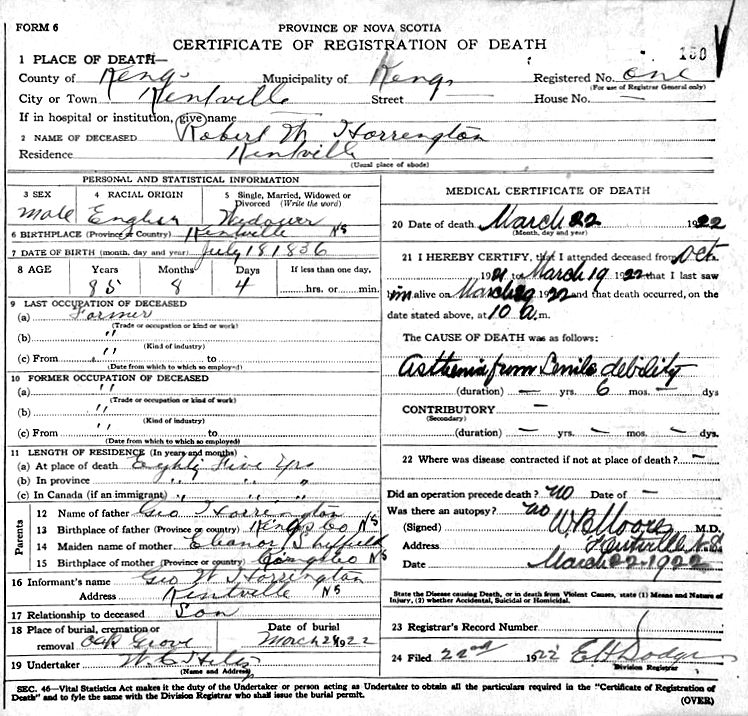 FORM 6
PROVINCE OF NOVA SCOTIA
CERTIFICATE OF REGISTRATION OF DEATH
150
1 PLACE OF DEATH—
County of Kings Municipality of Kings Registered No. one
(For use of Registrar General only)
City or Town Kentville Street — House No. —
If in hospital or institution, give name —
2 NAME OF DECEASED Robert W Harrington
Residence Kentville
(Usual place of abode)
PERSONAL AND STATISTICAL INFORMATION
3 SEX Male
4 RACIAL ORIGIN English
5 Single, Married, Widowed or Divorced (Write the word) Widower
6 BIRTHPLACE (Province or Country) Kentville NS
7 DATE OF BIRTH (month, day and year) July 18 1836
8 AGE Years Months Days If less than one day,
85 8 4 ....hrs. or .... min.
9 LAST OCCUPATION OF DECEASED
(a) Farmer
(Trade or occupation or kind or work)
(b) "
(Kind of industry)
(c) From " to
(Date from which to which so employed)
10 FORMER OCCUPATION OF DECEASED
(a) "
(Trade or occupation or kind of work)
(b) "
(Kind of industry)
(c) From " to
(Date from which to which so employed)
11 LENGTH OF RESIDENCE (In years and months)
(a) At place of death Eighty Five Yrs
(b) In province " " "
(c) In Canada (if an immigrant) " " "
Parents
12 Name of father Geo Harrington
13 Birthplace of father (Province or country) Kings Co NS
14 Maiden name of mother Eleanor Sheffield
15 Birthplace of mother (Province or country) Kings Co NS
16 Informant's name Geo W Harrington
Address Kentville NS
17 Relationship to deceased Son
18 Place of burial, cremation or removal Oak Grove
Date of burial March 24 1922
19 Undertaker
(Name and Address)
MEDICAL CERTIFICATE OF DEATH
20 Date of death March 22 1922
(Month, day and year)
21 I HEREBY CERTIFY, that I attended deceased from Oct.
1921 to March 19 1922 that I last saw
him alive on March 1922 and that death occurred, on the
date stated above, at 10 a.m.
The CAUSE OF DEATH was as follows:
Asthenia from Senile debility
(duration) — yrs. 6 mos. — dys
CONTRIBUTORY —
(Secondary)
(duration) — yrs. — mos. — dys.
22 Where was disease contracted if not at place of death? —
Did an operation precede death? no Date of —
Was there an autopsy? no
(Signed) W B Moore M.D.
Address Kentville N.S.
Date March 22 - 1922
State the Disease causing Death, or in death from Violent Causes, state (1) Means and Nature of
Injury, (2) whether Accidental, Suicidal or Homicidal.
23 Registrar's Record Number 1
24 Filed 22nd 1922 E H Dodge
Division Registrar
SEC. 46—Vital Statistics Act makes it the duty of the Undertaker or person acting as Undertaker to obtain all the particulars required in the "Certificate of Registration of
Death" and to fyle the same with the Division Registrar who shall issue the burial permit.
(OVER)